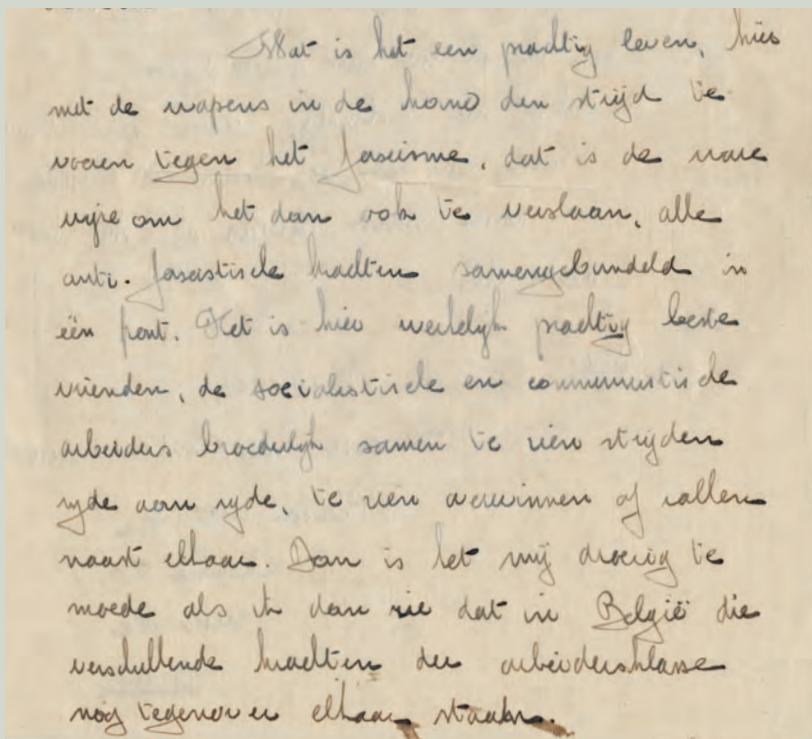 Wat is het een prachtig leven, hier
met de wapens in de hand den strijd te
voeren tegen het fascisme, dat is de ware
wijze om het dan ook te verslaan, alle
anti-fascistische krachten samengebundeld in
één front. Het is hier werkelijk prachtig beste
vrienden, de socialistische en communistische
arbeiders broederlijk samen te zien strijden
zijde aan zijde, te zien overwinnen of vallen
naast elkaar. Dan is het mij droevig te
moede als ik dan zie dat in België die
verschillende krachten der arbeidersklasse
nog tegenover elkaar staan.